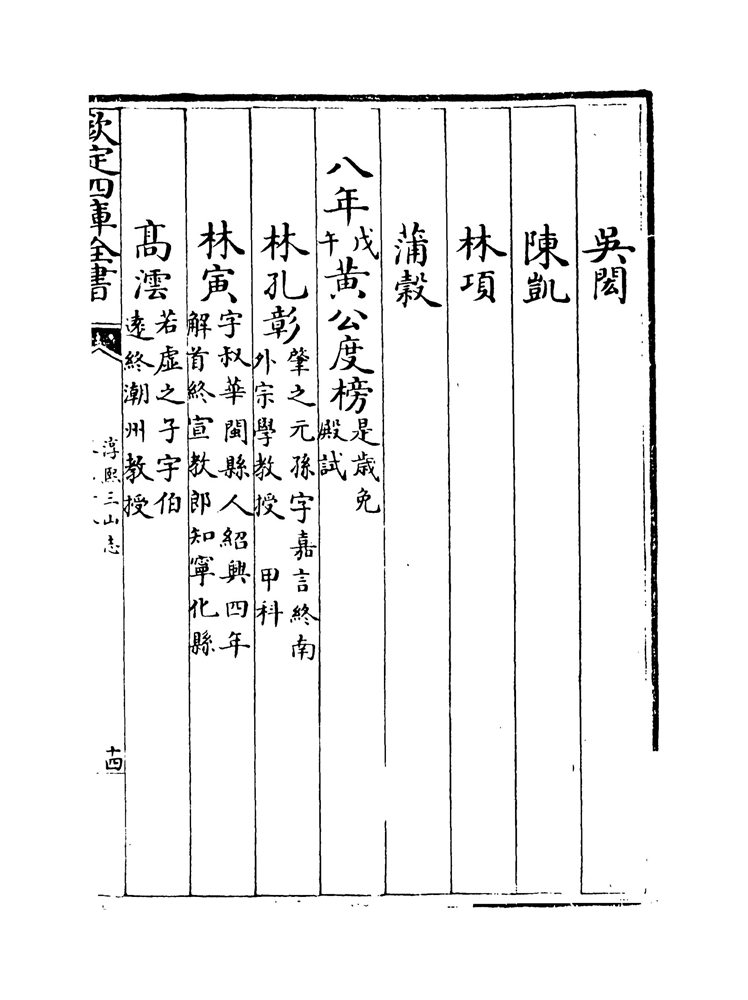 吳閎
陳凱
林項
蒲穀
八年戊午黃公度榜是歳免殿試
林孔彰肇之元孫字嘉言終南外宗學教授 甲科
林寅字叔華閩縣人紹興四年解首終宣教郎知寧化縣
髙澐若虛之子字伯逺終潮州教授
欽定四庫全書
淳熙三山志
十四